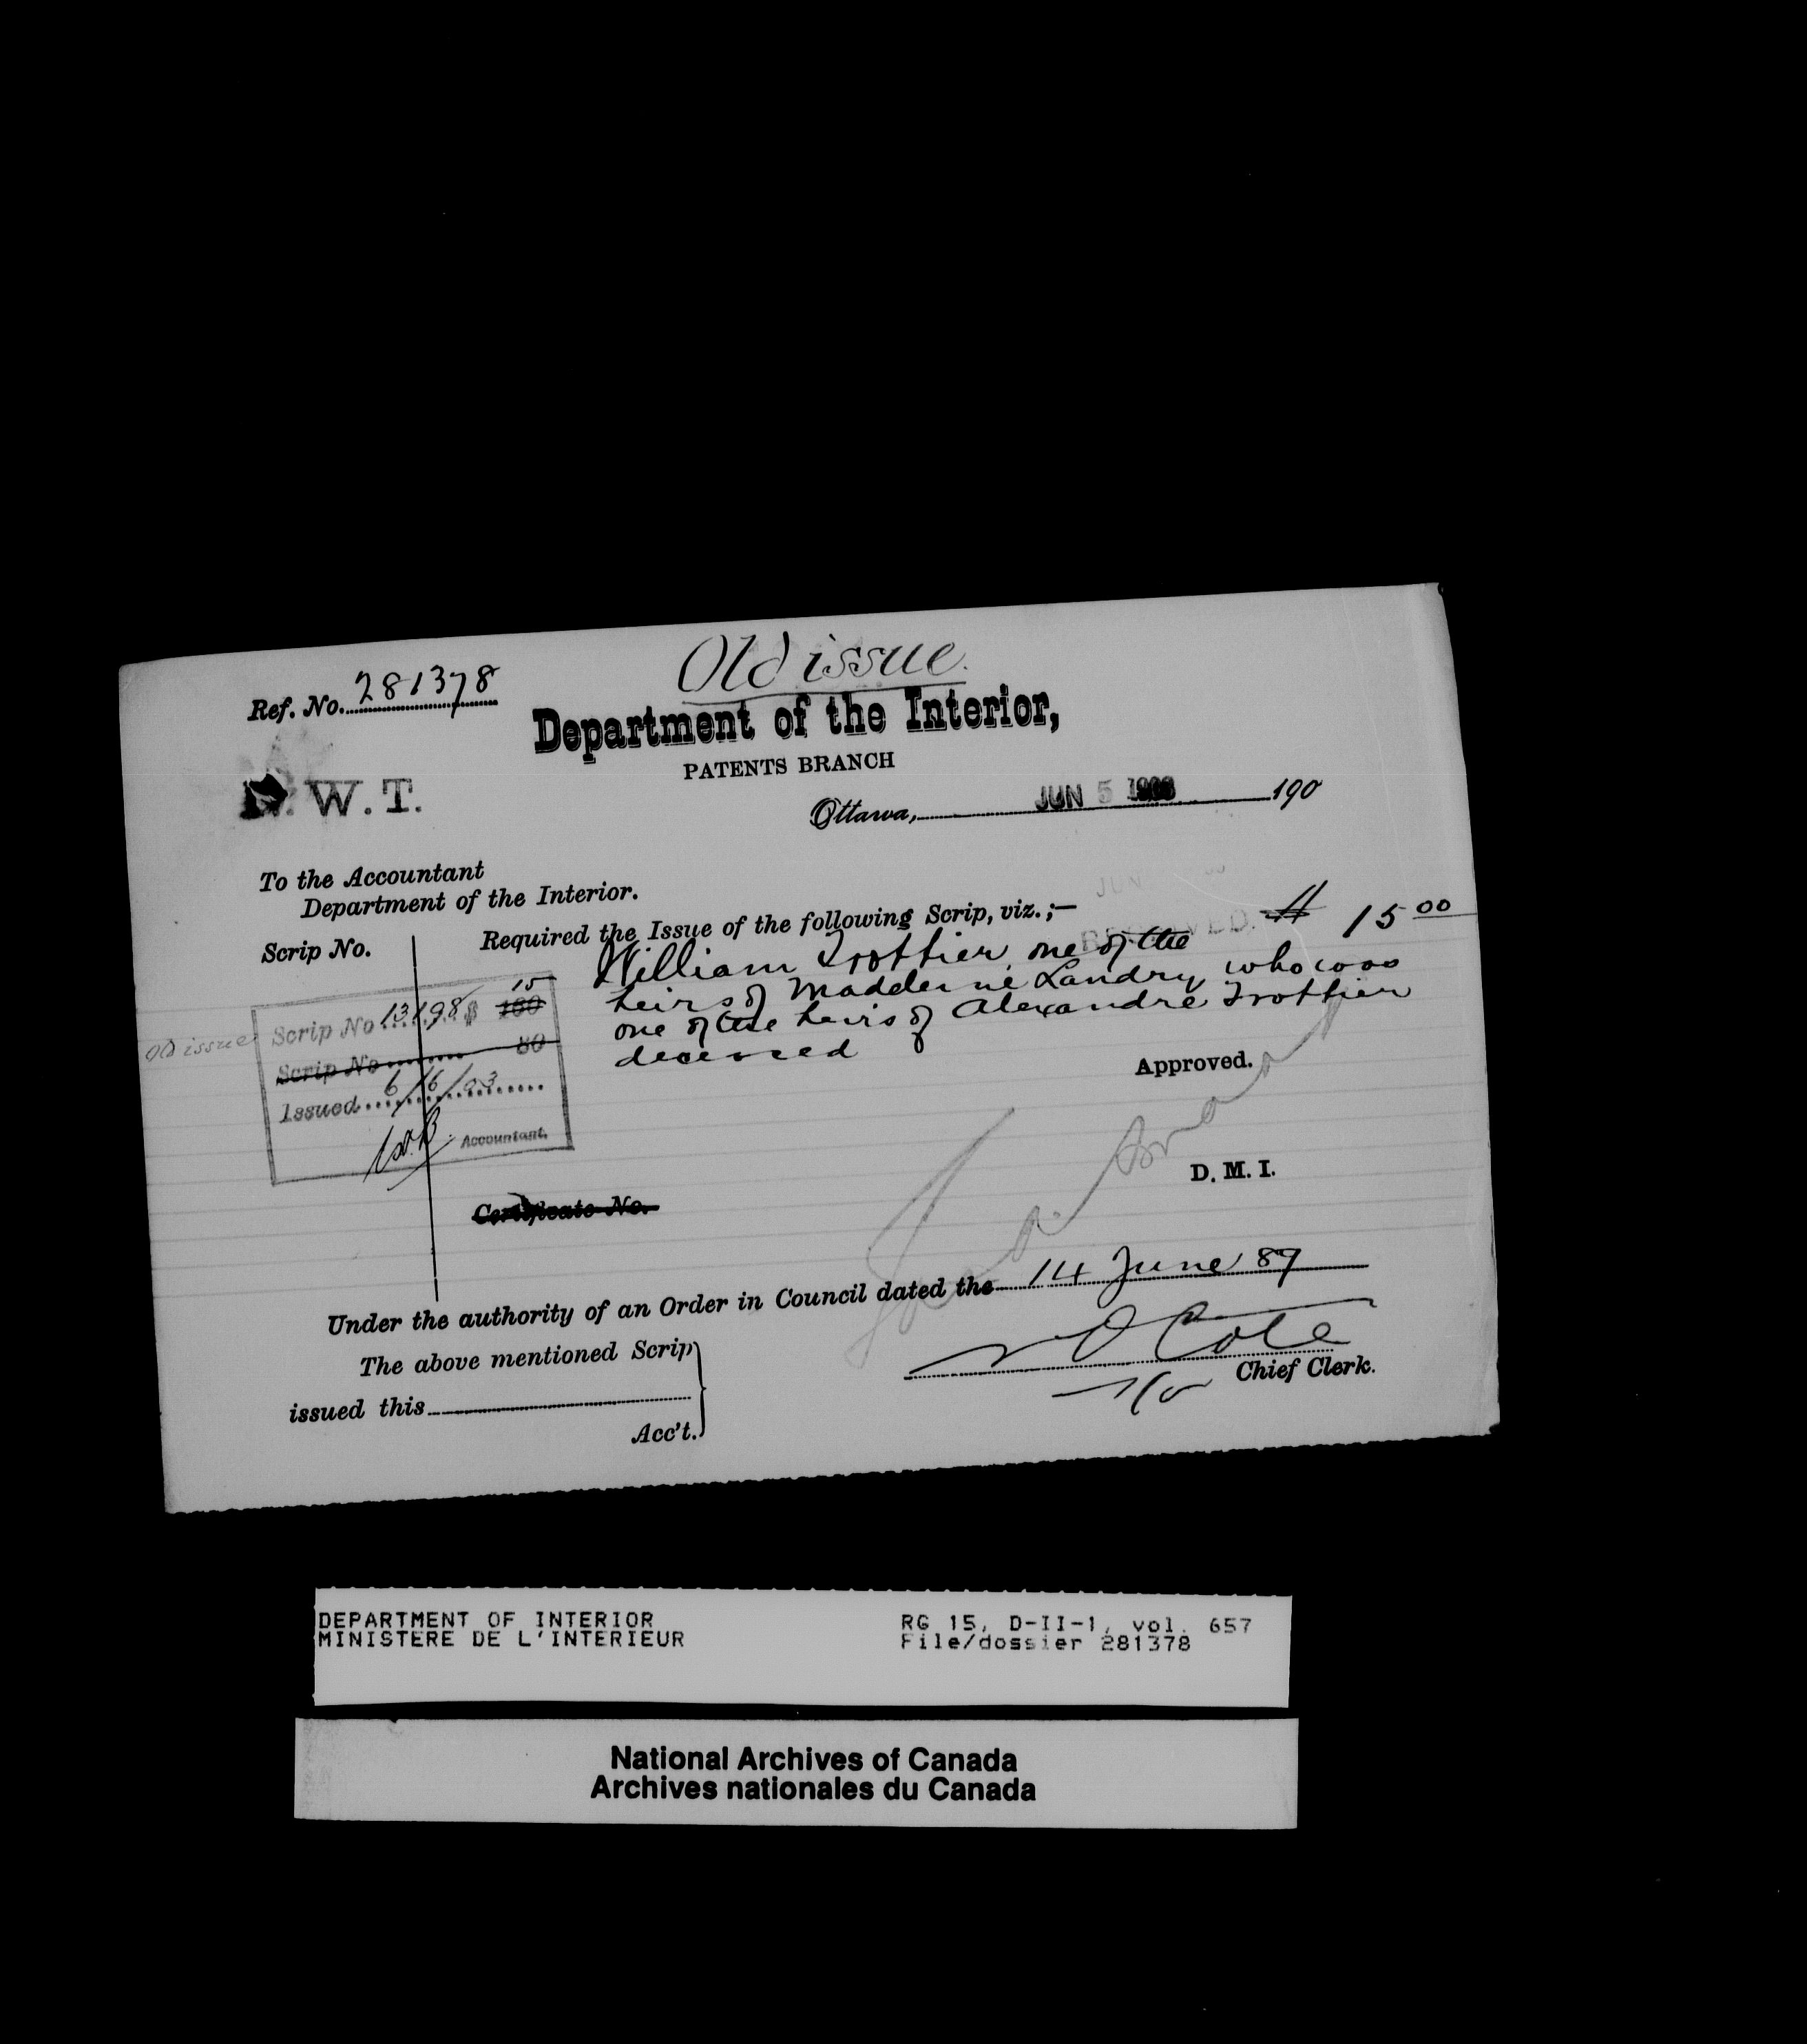 Old issue.
Ref. No. 281378
Department of the Interior,
PATENTS BRANCH
W. T.
Ottawa, JUN 5 1903 190
To the Accountant
Department of the Interior.
Scrip No.
Required the Issue of the following Scrip, viz.;—
$ 15 00
William Trottier, one of the
heirs of Madeleine Landry who was
one of the heirs of Alexandre Trottier
deceased
15
Scrip No 13198 $ 160
old issue
Scrip No 80
Issued 6/6/03
Accountant.
Approved.
D. M. I.
Certificate No.
Under the authority of an Order in Council dated the 14 June 89
The above mentioned Scrip
issued this
Acc't.
N O Cote
Chief Clerk.
DEPARTMENT OF INTERIOR
MINISTERE DE L'INTERIEUR
RG 15, D-II-1, vol. 657
File/dossier 281378
National Archives of Canada
Archives nationales du Canada